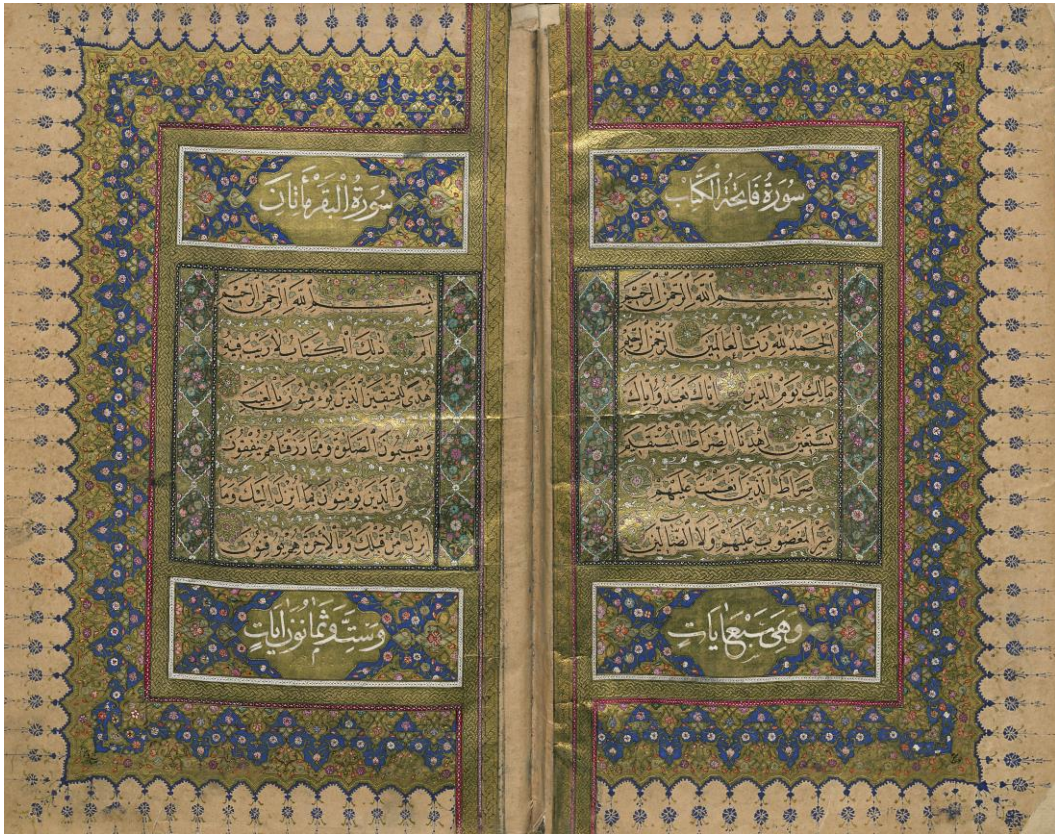 سُورَةُ فَاتِحَةُ الْكِتَابِ
بِسْمِ اللَّهِ الرَّحْمَٰنِ الرَّحِيمِ
اَلْحَمْدُ لِلَّهِ رَبِّ الْعَالَمِينَ الرَّحْمَٰنِ الرَّحِيمِ
مَالِكِ يَوْمِ الدِّينِ اِيَّاكَ نَعْبُدُ وَاِيَّاكَ
نَسْتَعِينُ اِهْدِنَا الصِّرَاطَ الْمُسْتَقِيمَ
صِرَاطَ الَّذِينَ اَنْعَمْتَ عَلَيْهِمْ
غَيْرِ الْمَغْضُوبِ عَلَيْهِمْ وَلَا الضَّالِّينَ
وَهِيَ سَبْعُ اٰيَاتٍ
سُورَةُ الْبَقَرَةِ مِائَتَانِ
بِسْمِ اللَّهِ الرَّحْمَٰنِ الرَّحِيمِ
الٓمٓ ذَٰلِكَ الْكِتَابُ لَا رَيْبَ فِيهِ
هُدًى لِلْمُتَّقِينَ الَّذِينَ يُؤْمِنُونَ بِالْغَيْبِ
وَيُقِيمُونَ الصَّلَوٰةَ وَمِمَّا رَزَقْنَاهُمْ يُنْفِقُونَ
وَالَّذِينَ يُؤْمِنُونَ بِمَا اُنْزِلَ اِلَيْكَ وَمَا
اُنْزِلَ مِنْ قَبْلِكَ وَبِالْاٰخِرَةِ هُمْ يُوقِنُونَ
وَسِتَّةٌ وَثَمَانُونَ اٰيَاتٍ